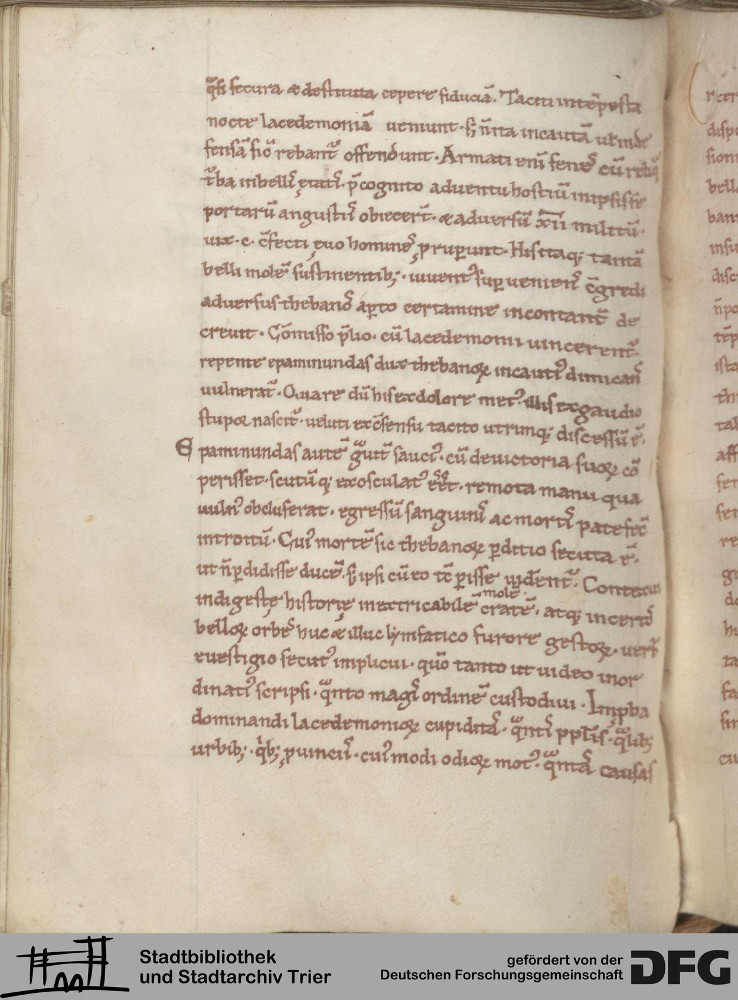 q̄si secura & destituta cepere fiduciā. Taciti intēpesta
nocte lacedemoniā ueniunt. s; n̄ ita incautā ut inde
fensā sic̄ rebant᷑ offendunt. Armati eni senes cū reliq̄
t᷑ba inbellis ętatis. p̄cognito aduentu hostiū in ipsis fe
portarū angustiis obiecert᷑. & aduersū x̄ii militū.
uix .c. c̄fecti ęuo homines prupunt. His itaq; tantā
belli molē sustinentib;. iuuent᷒ supueniens c̄gredi
aduersus thebanos apto certamine incontant᷑ de
creuit. Cōmisso p̄lio. cū lacedemonii uincerent᷑.
repente epaminundas dux thebanoꝝ incauti᷒ dimicans
uulnerat᷑. Quare dū his ex dolore met᷒. illis ex gaudio
stupor nascit᷑. ueluti ex c̄sensu tacito utrinq; discessū ē.
Epaminundas autē gͣuit᷑ sauci᷒. cū de uictoria suoꝝ cō
perisset. scutūq; exosculat᷒ eēt. remota manu qua
uuln᷒ obcluserat. egressū sanguinis ac mortis patefec̄
introitū. Cui᷒ mortē sic thebanoꝝ pditio secuta ē.
ut n̄ pdidisse ducē. s; ipsi cū eo tc̄ pisse uident᷑. Contextui
indigestę historię inextricabilē cratē. atq; incertos
mole
belloꝝ orbes huc & illuc lymfatico furore gestoꝝ. uerb
e uestigio secut᷒ implicui. quo tanto ut uideo inor
dinati᷒ scripsi. qͣnto magis ordinē custodiui. Inpba
dominandi lacedemonioꝝ cupiditas. qͣntis pplis. qͣlib;
urbib; qͥb; puinciis. cui᷒modi odioꝝ mot᷒. qͣntas causas
Stadtbibliothek
und Stadtarchiv Trier
gefördert von der
Deutschen Forschungsgemeinschaft
DFG